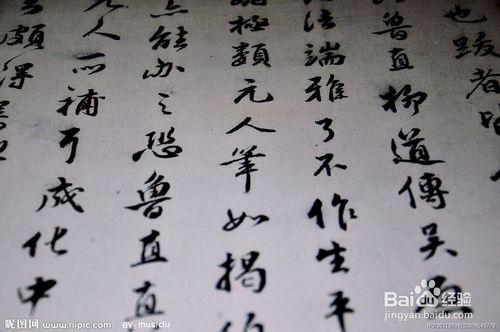 也跋者
魯直柳道傳吳
法端雅了不作生平
極類元人筆如揭
能亦之恐魯直直
人所補丁成化中
頗得
昵图网 www.nipic.com by: musiclu
Bai du 经验
jingyan.baidu.com